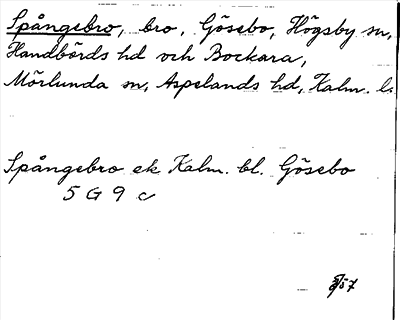 Spångebro, bro, Gösebo, Högsby sn,
Handbörds hd och Bockara,
Mörlunda sn, Aspelands hd, Kalm. l
Spångebro ek Kalm. bl. Gösebo
5 G 9 c
57